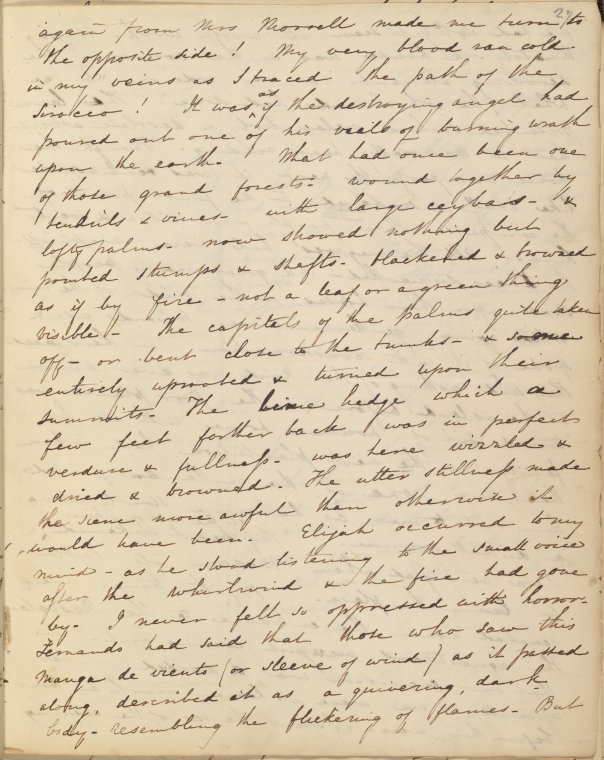 27
again from Mrs Morrell made me turn to
the opposite side! My very blood ran cold
in my veins as I traced the path of the
Sirocco! It was as if the destroying angel had
poured out one of his vials of burning wrath
upon the earth. What had once been one
of those grand forests - wound together by
tendrils & vines - with large ceybas - &
lofty palms - now showed nothing but
pointed stumps & shafts - blackened & browned
as if by fire - not a leaf or a green thing
visible - The capitals of the palms quite taken
off - or bent close to the trunks - & some
entirely uprooted & turned upon their
summits. The lime hedge which a
few feet forther back was in perfect
verdure & fullness - was here wizzled &
dried & browned. The utter stillness made
the scene more awful than otherwise it
would have been. Elijah occurred to my
mind - as he stood listening to the small voice
after the whirlwind & the fire had gone
by - I never felt so oppressed with horror.
Fernando had said that those who saw this
manga de viento (or sleeve of wind) as it passed
along, described it as a quivering, dark
body - resembling the flickering of flames - But